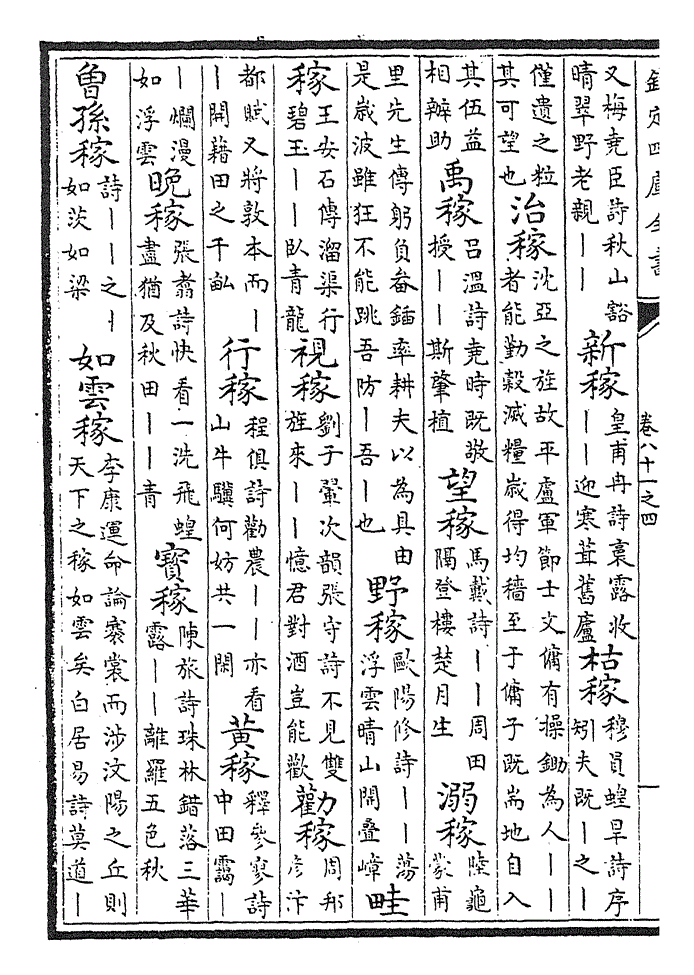 欽定四庫全書
卷八十一之四
一
又梅堯臣詩秋山豁晴翠野老親｜｜新稼皇甫冉詩裛露收｜｜迎寒葺舊廬枯稼穆員蝗旱詩序矧夫既｜之｜
僅遺之粒其可望也治稼沈亞之旌故平盧軍節士文傭有操鋤為人｜｜者能勤穀滅糧歲得均穡至于傭子既耑地自入
其伍益相辦助禹稼呂溫詩堯時既敬授｜｜斯肇植望稼馬戴詩｜｜周田隔登樓楚月生溺稼陸龜蒙甫
里先生傳躬負畚鍤率耕夫以為具由是歲波雖狂不能跳吾防｜吾｜也野稼歐陽修詩｜｜蕩浮雲晴山開疊嶂畦
稼王安石傳溜渠行碧玉｜｜臥青龍視稼劉子翬次韻張守詩不見雙旌來｜｜憶君對酒豈能歡勸稼周邦彥汴
都賦又將敦本而｜｜開藉田之千畝行稼程俱詩勸農｜｜亦看山牛驥何妨共一閑黃稼釋參寥詩中田靄｜
｜爛漫如浮雲晚稼張翥詩快看一洗飛蝗盡猶及秋田｜｜青寶稼陳旅詩珠林錯落三華露｜｜離羅五色秋
魯孫稼詩｜｜之｜如茨如梁如雲稼李康運命論褰裳而涉汶陽之丘則天下之稼如雲矣白居易詩莫道｜